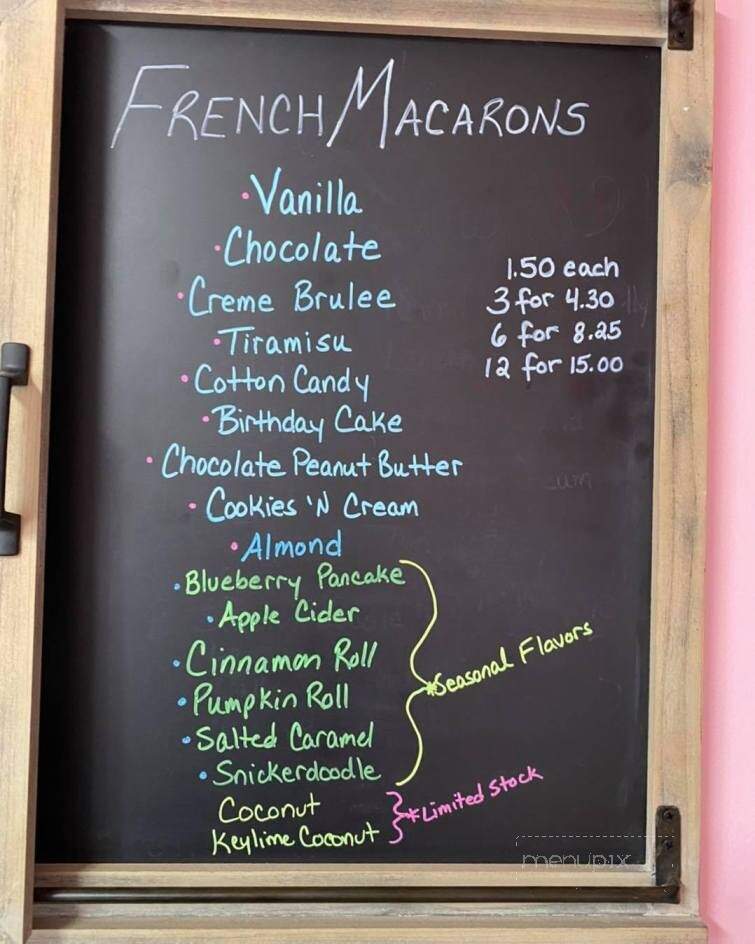 FRENCH MACARONS
• Vanilla
• Chocolate
• Creme Brulee
• Tiramisu
• Cotton Candy
• Birthday Cake
• Chocolate Peanut Butter
• Cookies 'N Cream
• Almond
• Blueberry Pancake
• Apple Cider
• Cinnamon Roll
• Pumpkin Roll
• Salted Caramel
• Snickerdoodle
*Seasonal Flavors
Coconut
Keylime Coconut
*Limited Stock
1.50 each
3 for 4.30
6 for 8.25
12 for 15.00
menupix